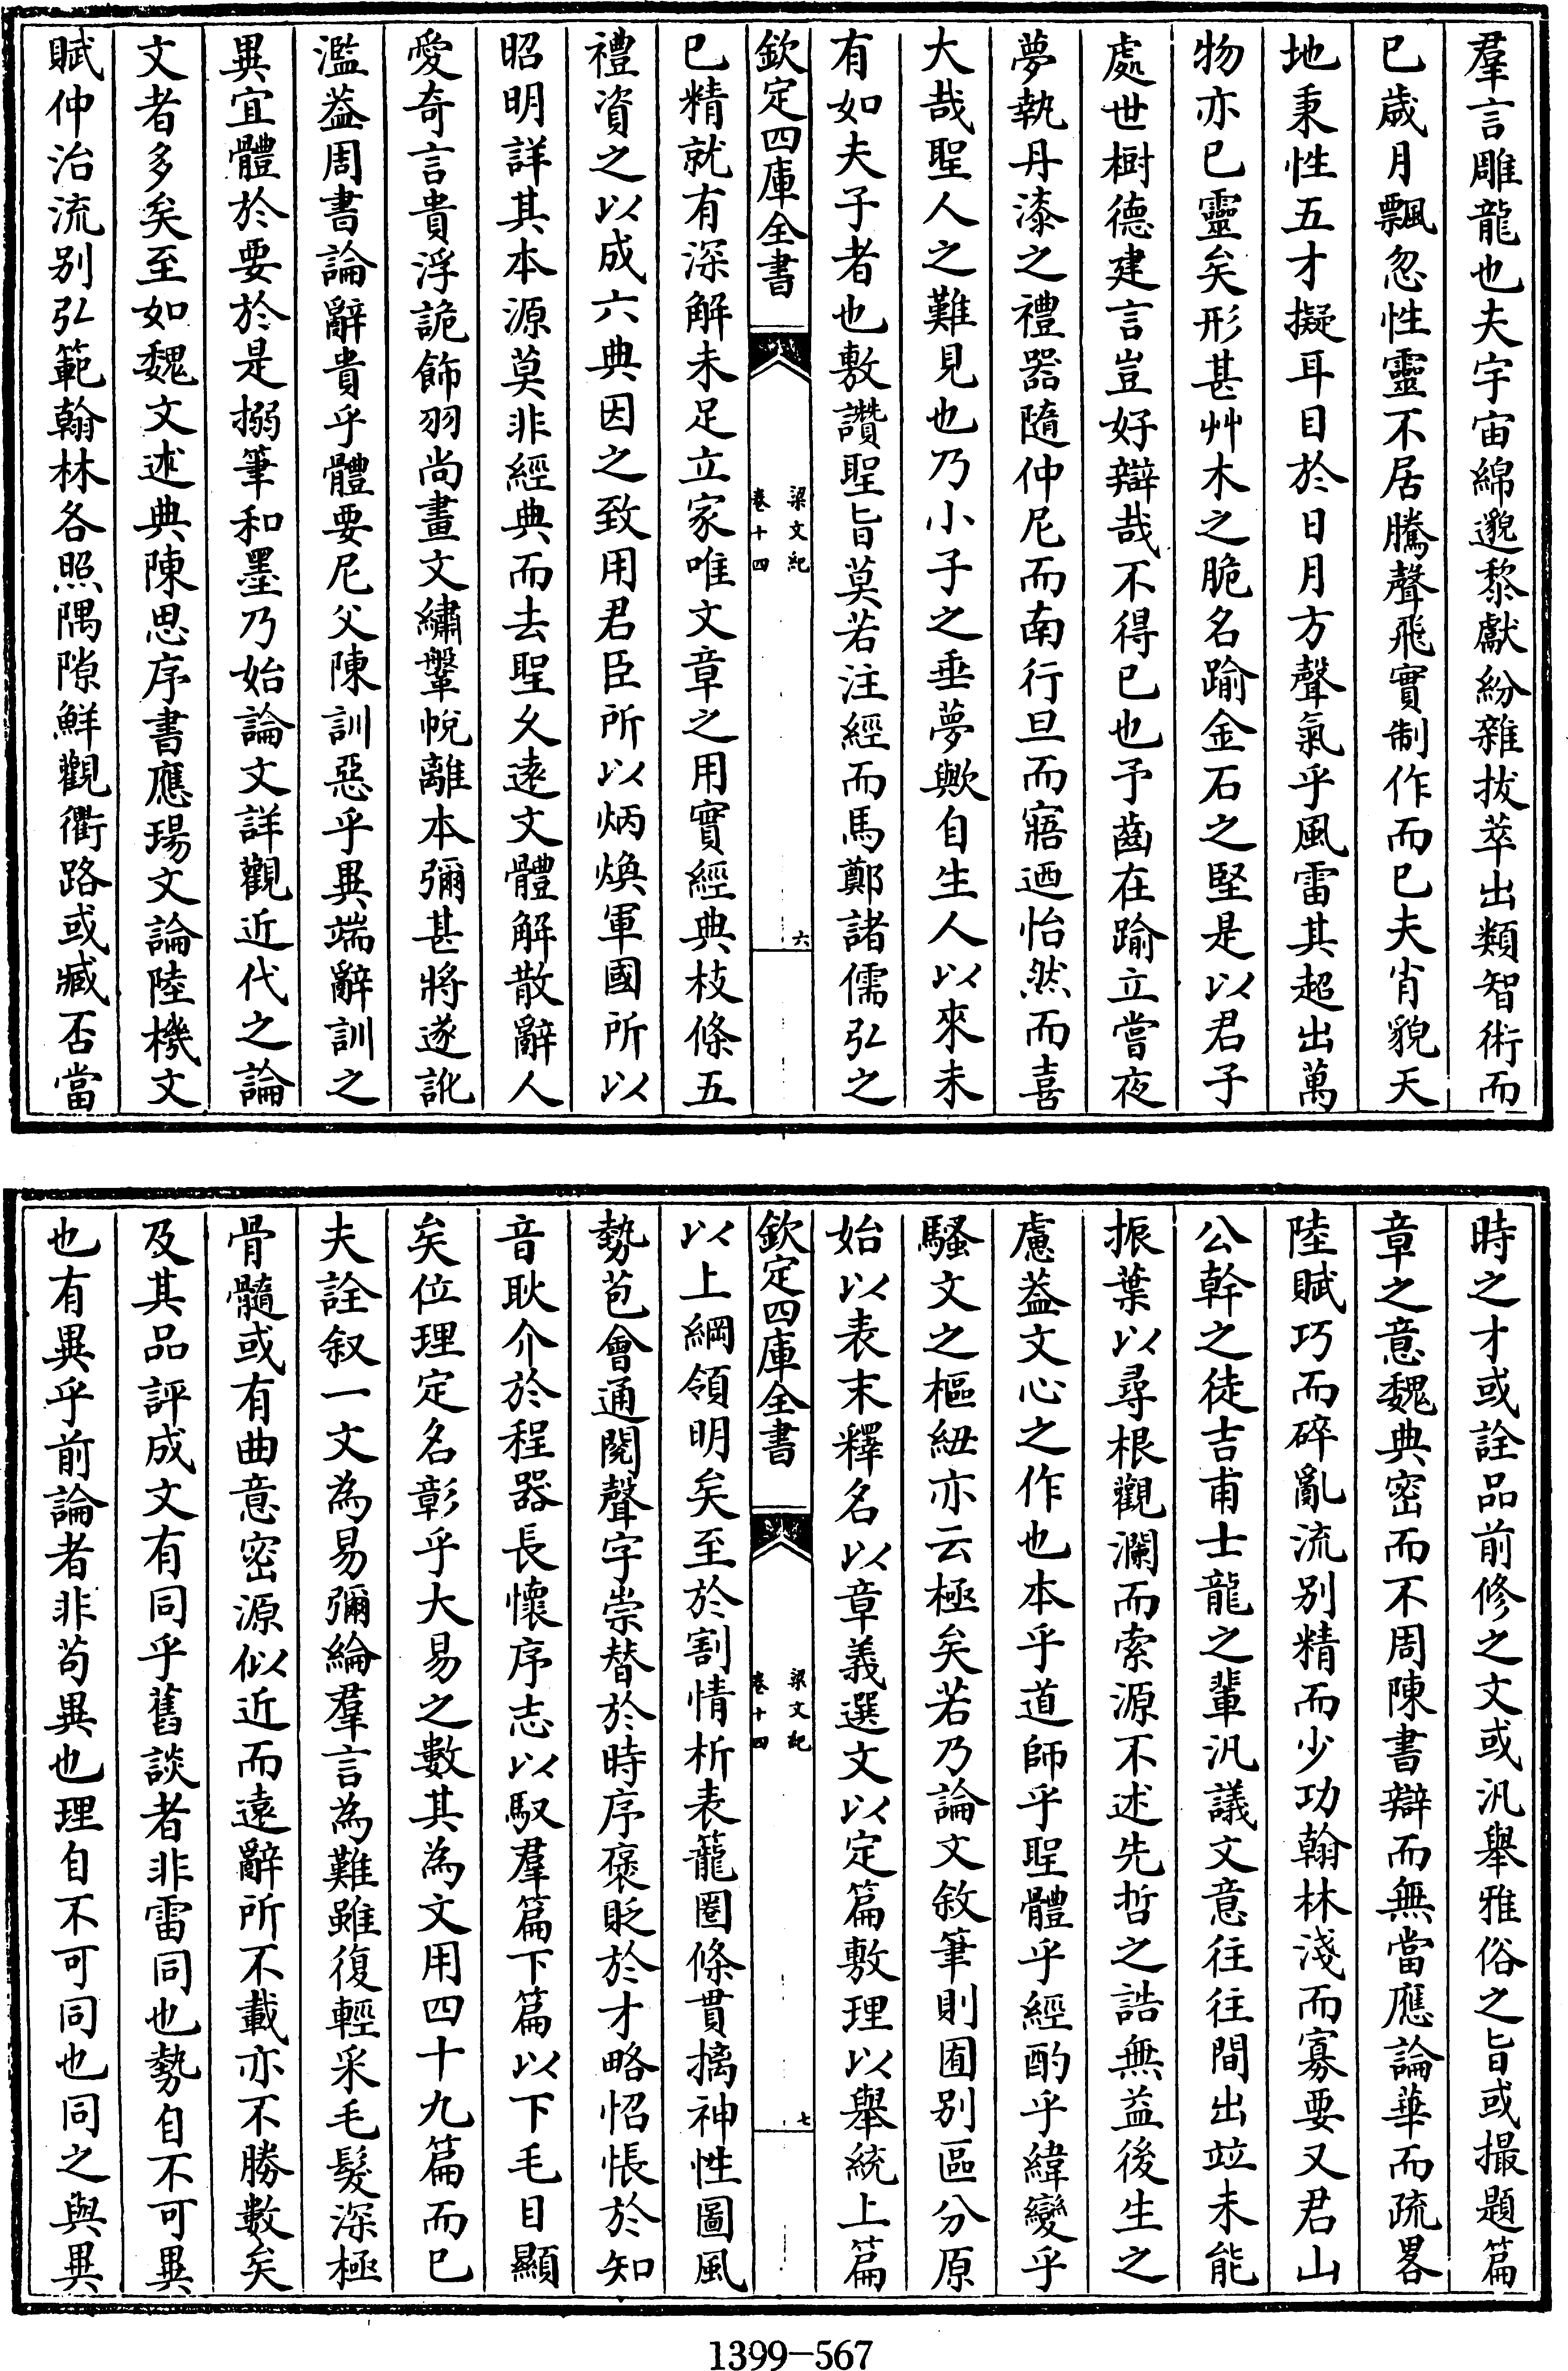 羣言雕龍也夫宇宙綿邈黎獻紛雜拔萃出類智術而
已歲月飄忽性靈不居騰聲飛實制作而已夫肖貌天
地秉性五才擬耳目於日月方聲氣乎風雷其超出萬
物亦已靈矣形甚艸木之脆名踰金石之堅是以君子
處世樹德建言豈好辯哉不得已也予齒在踰立嘗夜
夢執丹漆之禮器隨仲尼而南行旦而寤迺怡然而喜
大哉聖人之難見也乃小子之垂夢歟自生人以來未
有如夫子者也敷讚聖旨莫若注經而馬鄭諸儒弘之
欽定四庫全書
梁文紀
卷十四
六
已精就有深解未足立家唯文章之用實經典枝條五
禮資之以成六典因之致用君臣所以炳煥軍國所以
昭明詳其本源莫非經典而去聖久遠文體解散辭人
愛奇言貴浮詭飾羽尚畫文繡鞶帨離本彌甚將遂訛
濫葢周書論辭貴乎體要尼父陳訓惡乎異端辭訓之
異宜體於要於是搦筆和墨乃始論文詳觀近代之論
文者多矣至如魏文述典陳思序書應瑒文論陸機文
賦仲治流別弘範翰林各照隅隙鮮觀衢路或臧否當
時之才或詮品前修之文或汎舉雅俗之旨或撮題篇
章之意魏典密而不周陳書辯而無當應論華而疏畧
陸賦巧而碎亂流別精而少功翰林淺而寡要又君山
公幹之徒吉甫士龍之輩汎議文意往往間出竝未能
振葉以尋根觀瀾而索源不述先哲之誥無益後生之
慮葢文心之作也本乎道師乎聖體乎經酌乎緯變乎
騷文之樞紐亦云極矣若乃論文敘筆則囿別區分原
始以表末釋名以章義選文以定篇敷理以舉統上篇
欽定四庫全書
梁文紀
卷十四
七
以上綱領明矣至於割情析表籠圈條貫摛神性圖風
勢苞會通閱聲字崇替於時序褒貶於才略怊悵於知
音耿介於程器長懷序志以馭羣篇下篇以下毛目顯
矣位理定名彰乎大易之數其為文用四十九篇而已
夫詮叙一文為易彌綸羣言為難雖復輕采毛髮深極
骨髓或有曲意密源似近而遠辭所不載亦不勝數矣
及其品評成文有同乎舊談者非雷同也勢自不可異
也有異乎前論者非苟異也理自不可同也同之與異
1399-567